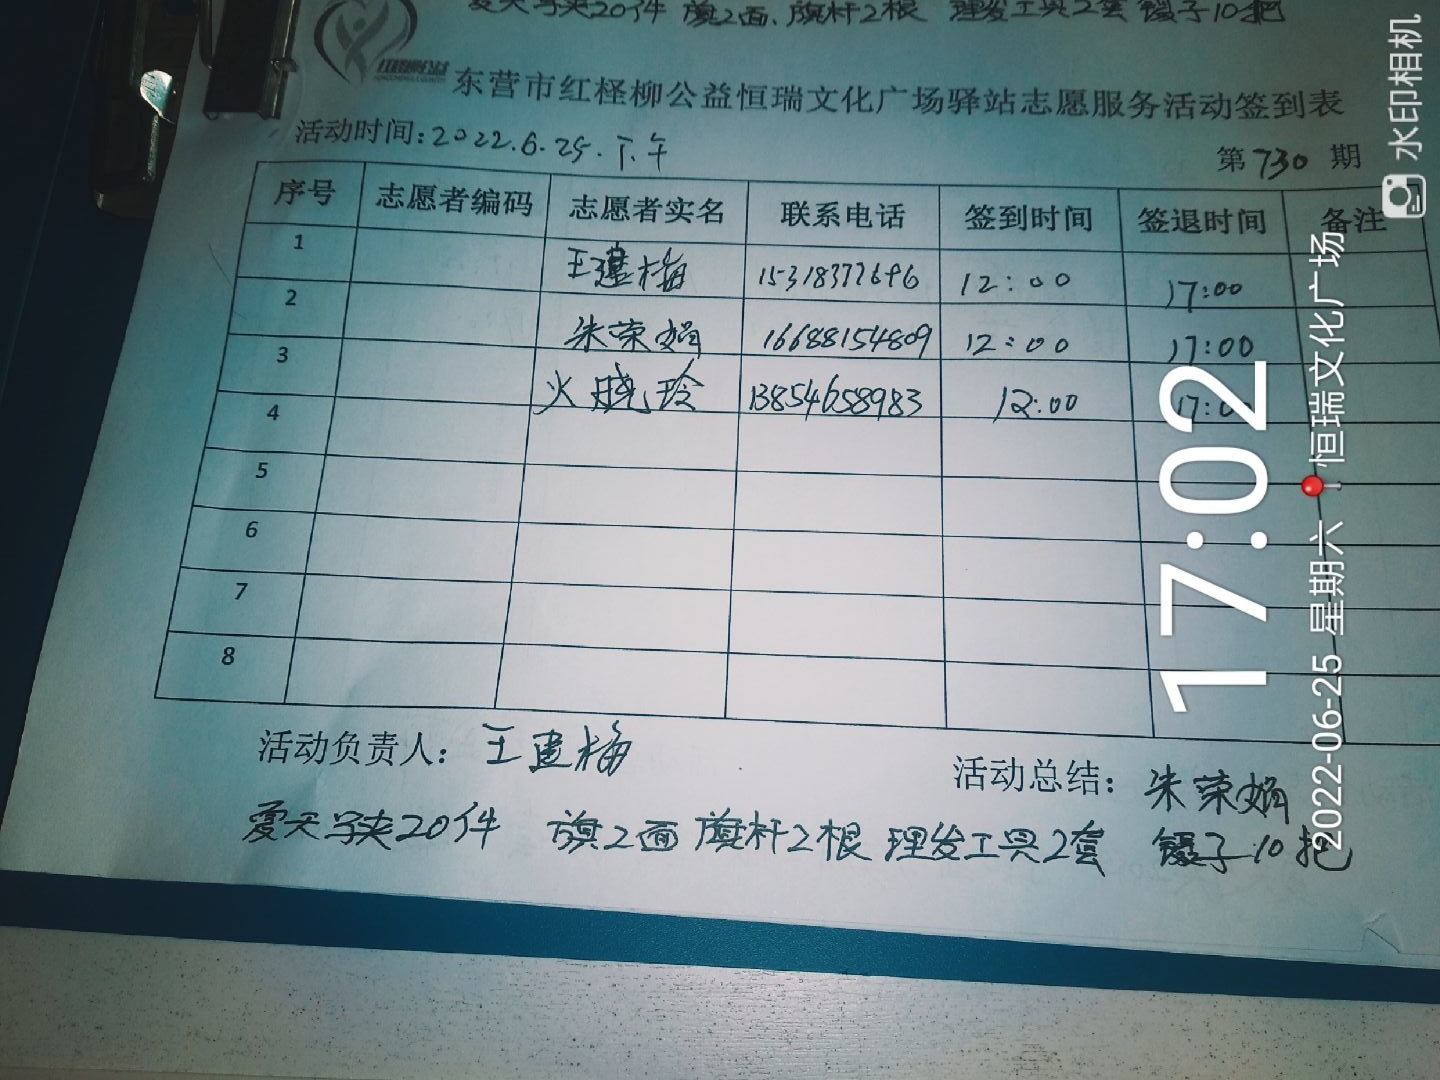 夏天马夹20件 旗2面、旗杆2根 理发工具2套 镊子10把
东营市红柽柳公益恒瑞文化广场驿站志愿服务活动签到表
活动时间:2022.6.25.下午
第730期
序号 志愿者编码 志愿者实名 联系电话 签到时间 签退时间 备注
1 王建梅 15318377696 12:00 17:00
2 朱荣娟 16688154809 12:00 17:00
3 火晓玲 13854658983 12:00 17:0
4
5
6
7
8
活动负责人: 王建梅
活动总结: 朱荣娟
夏天马夹20件 旗2面 旗杆2根 理发工具2套 镊子10把
水印相机
17:02
2022-06-25 星期六 恒瑞文化广场